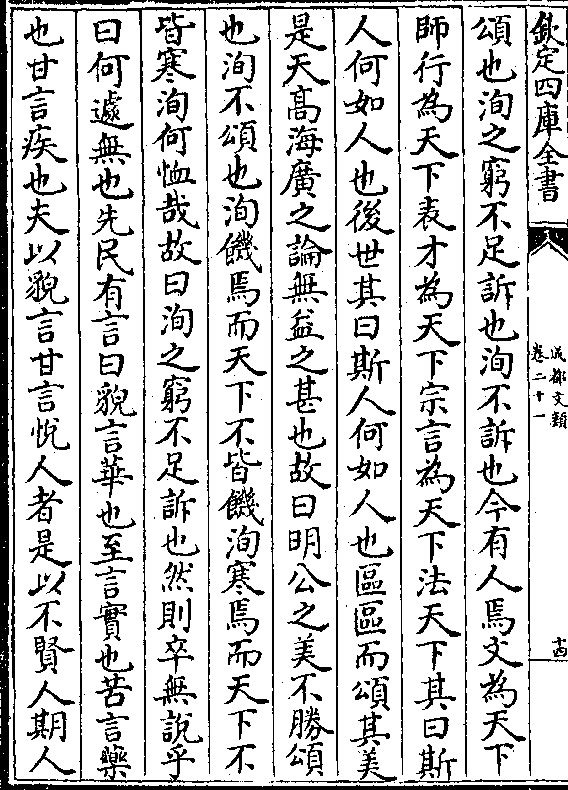 欽定四庫全書
成都文類
卷二十一
十四
頌也洵之窮不足訴也洵不訴也今有人焉文為天下
師行為天下表才為天下宗言為天下法天下其曰斯
人何如人也後世其曰斯人何如人也區區而頌其美
是天髙海廣之論無益之甚也故曰明公之美不勝頌
也洵不頌也洵饑焉而天下不皆饑洵寒焉而天下不
皆寒洵何恤哉故曰洵之窮不足訴也然則卒無說乎
曰何遽無也先民有言曰貌言華也至言實也苦言藥
也甘言疾也夫以貌言甘言悅人者是以不賢人期人